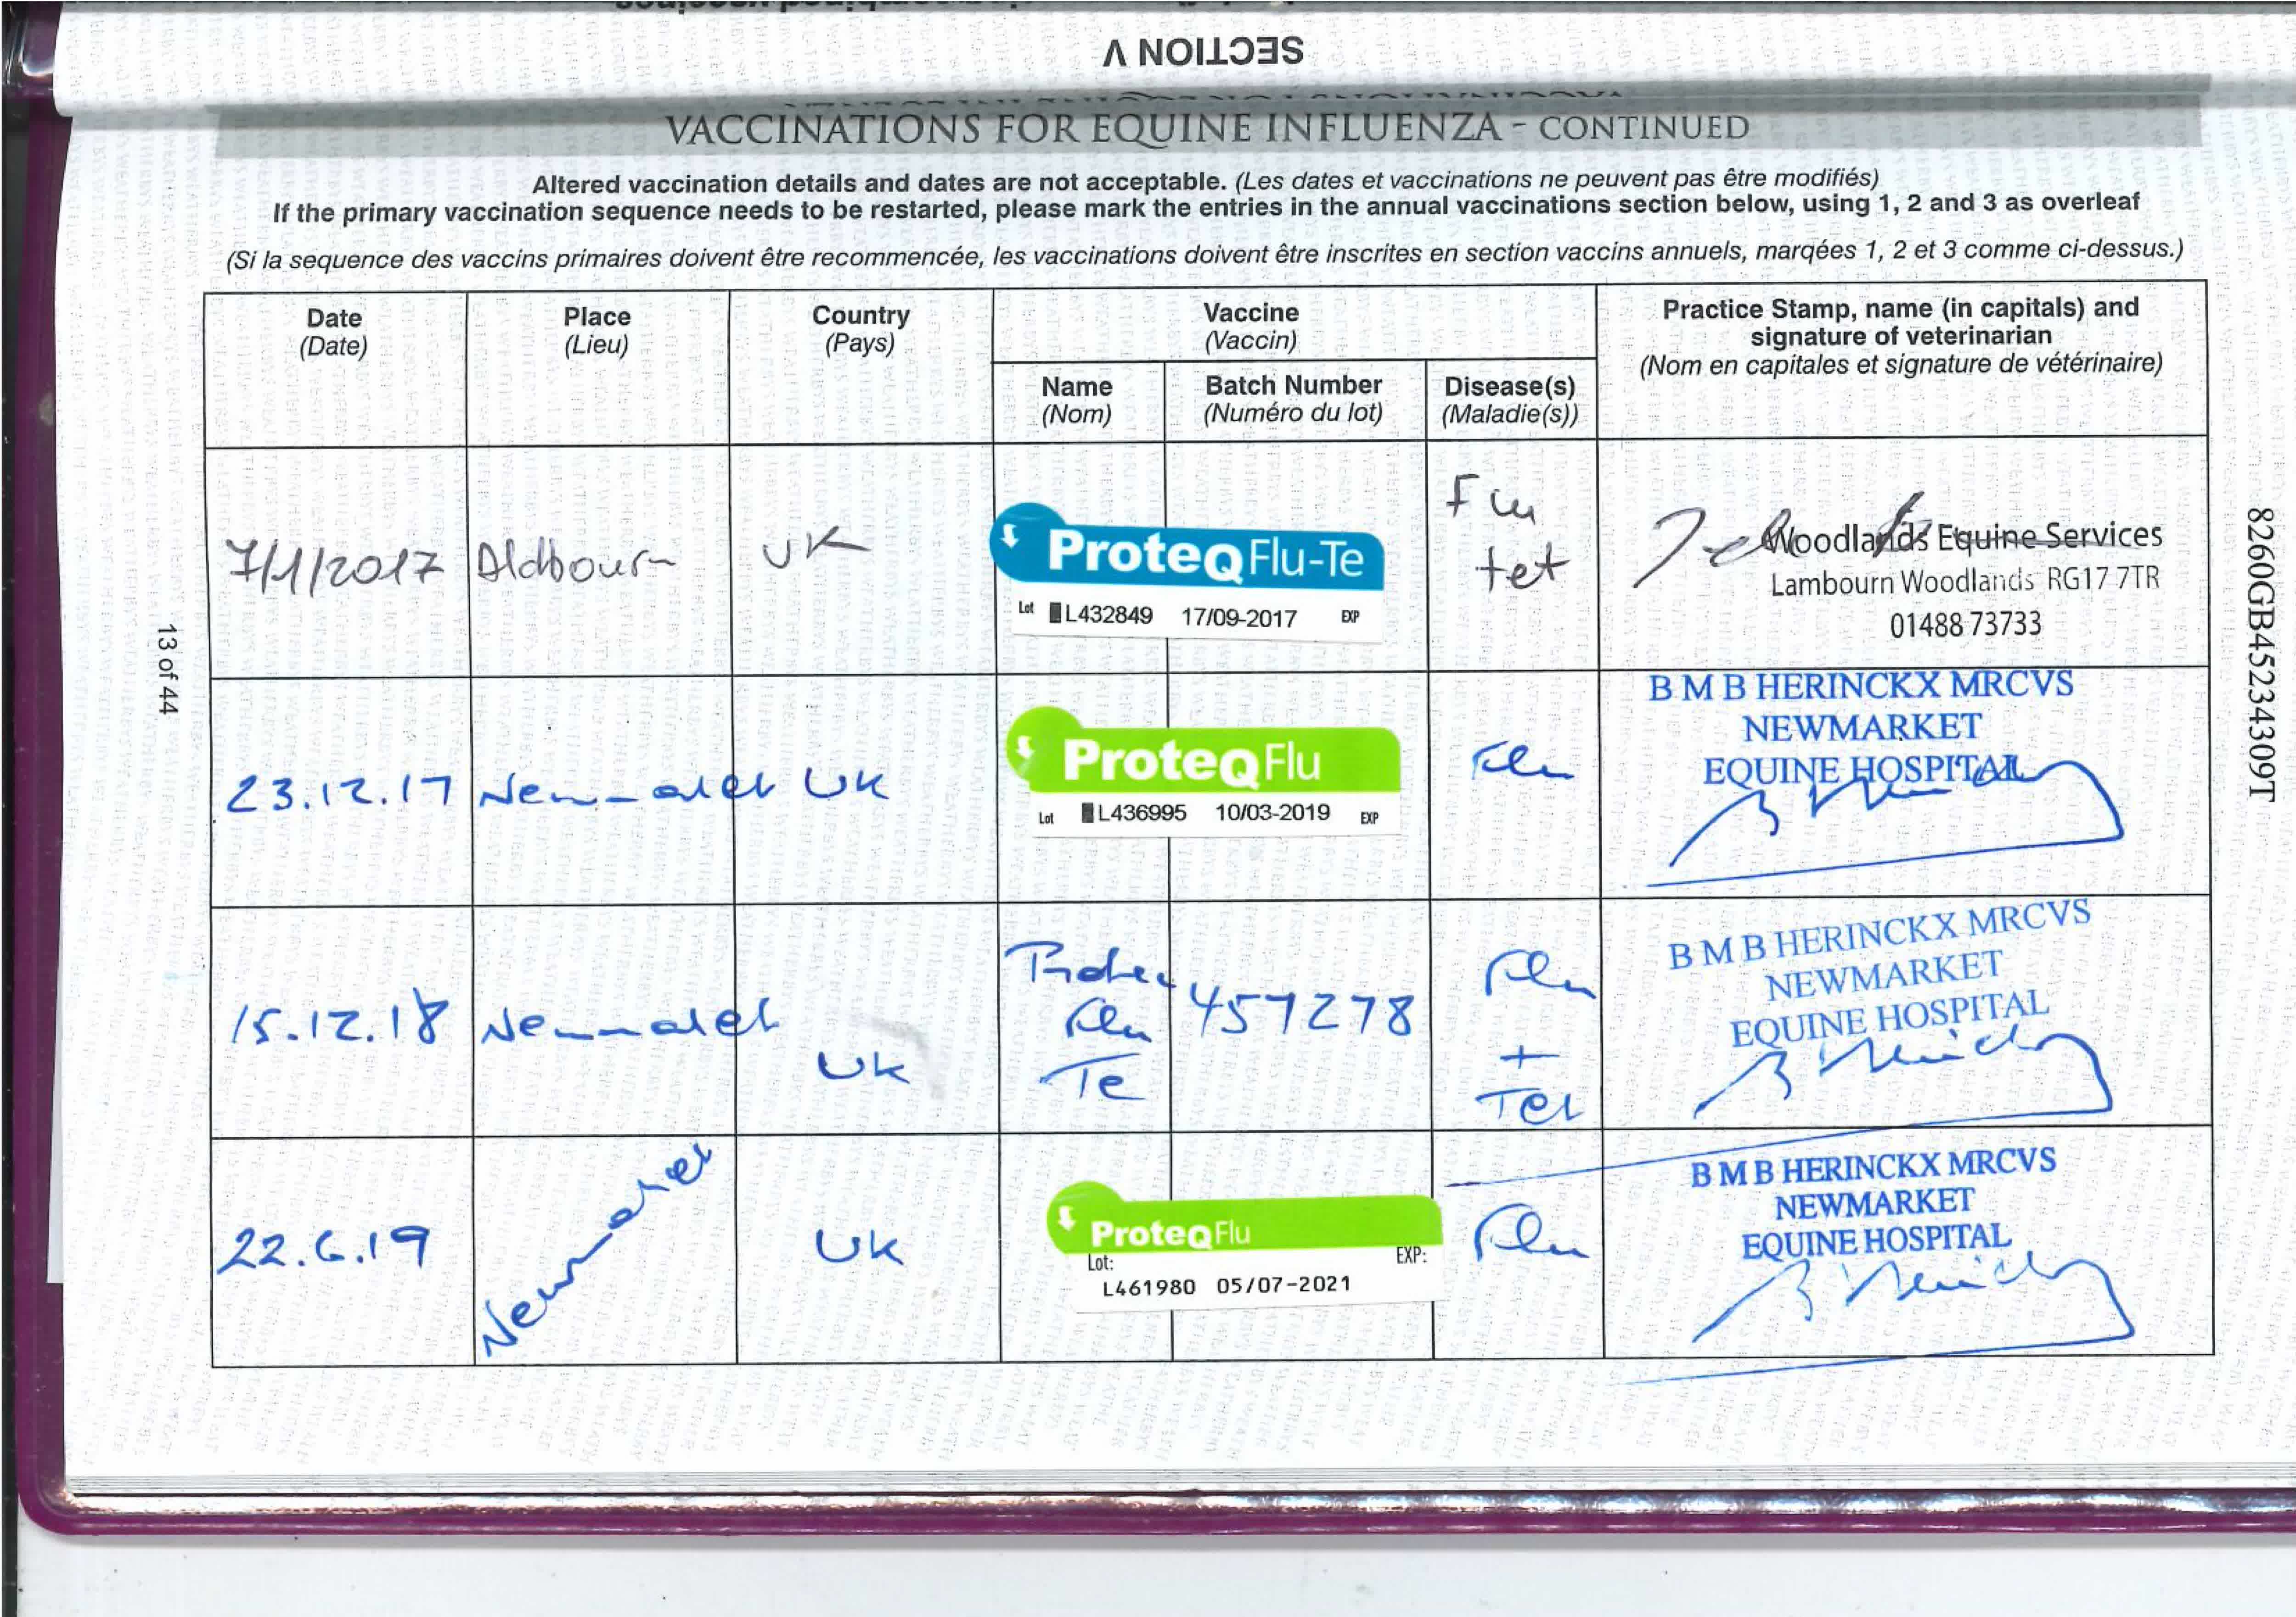 SECTION V
VACCINATIONS FOR EQUINE INFLUENZA - CONTINUED
Altered vaccination details and dates are not acceptable. (Les dates et vaccinations ne peuvent pas être modifiés)
If the primary vaccination sequence needs to be restarted, please mark the entries in the annual vaccinations section below, using 1, 2 and 3 as overleaf
(Si la sequence des vaccins primaires doivent être recommencée, les vaccinations doivent être inscrites en section vaccins annuels, marqées 1, 2 et 3 comme ci-dessus.)
Date
(Date)
Place
(Lieu)
Country
(Pays)
Vaccine
(Vaccin)
Name
(Nom)
Batch Number
(Numéro du lot)
Disease(s)
(Maladie(s))
Practice Stamp, name (in capitals) and
signature of veterinarian
(Nom en capitales et signature de vétérinaire)
7/1/2017
Aldbourn
UK
ProteQ Flu-Te
Lot L432849 17/09-2017 EXP
Flu
tet
Woodlands Equine Services
Lambourn Woodlands RG17 7TR
01488 73733
23.12.17
Newmarket
UK
ProteQ Flu
Lot L436995 10/03-2019 EXP
Flu
B M B HERINCKX MRCVS
NEWMARKET
EQUINE HOSPITAL
15.12.18
Newmarket
UK
Proteq
Flu
Te
457278
Flu
+
Tet
B M B HERINCKX MRCVS
NEWMARKET
EQUINE HOSPITAL
22.6.19
Newmarket
UK
ProteQ Flu
Lot: EXP:
L461980 05/07-2021
Flu
B M B HERINCKX MRCVS
NEWMARKET
EQUINE HOSPITAL
13 of 44
8260GB45234309T